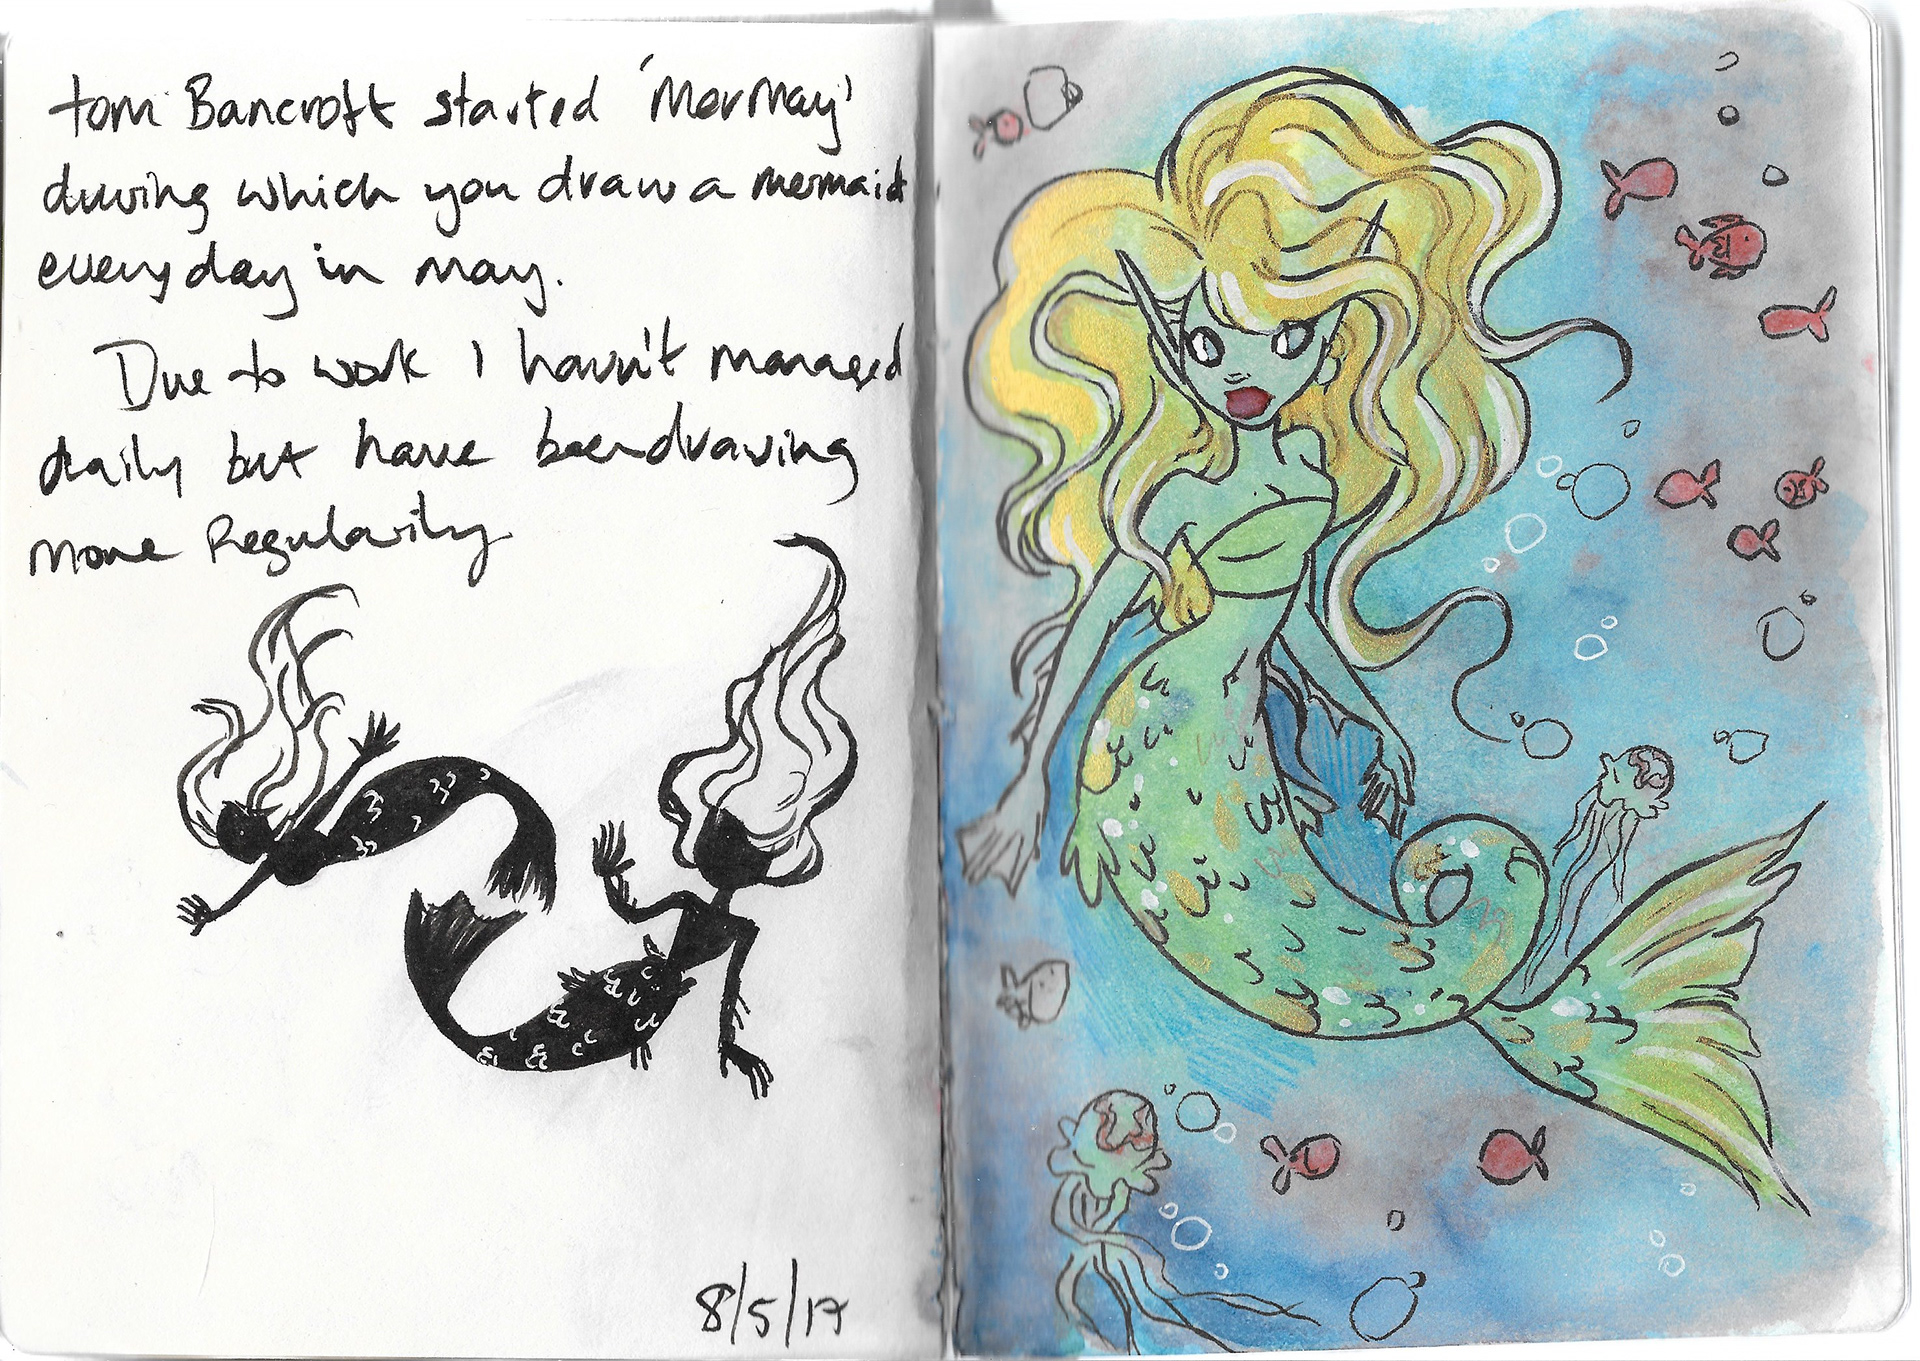 tom Bancroft started 'Mermay'
during which you draw a mermaid
everyday in may.
Due to work I havn't managed
daily but have been drawing
more Regularily
8/5/17